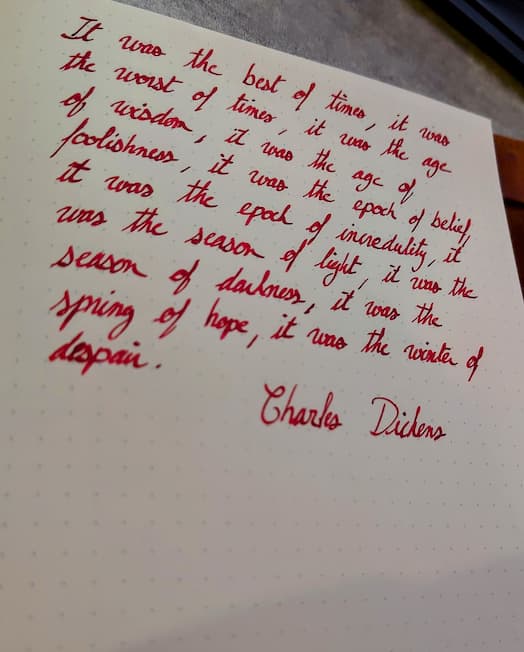 It was the best of times, it was
the worst of times, it was the age
of wisdom, it was the age of
foolishness, it was the epoch of belief,
it was the epoch of incredulity, it
was the season of light, it was the
season of darkness, it was the
spring of hope, it was the winter of
despair.
Charles Dickens